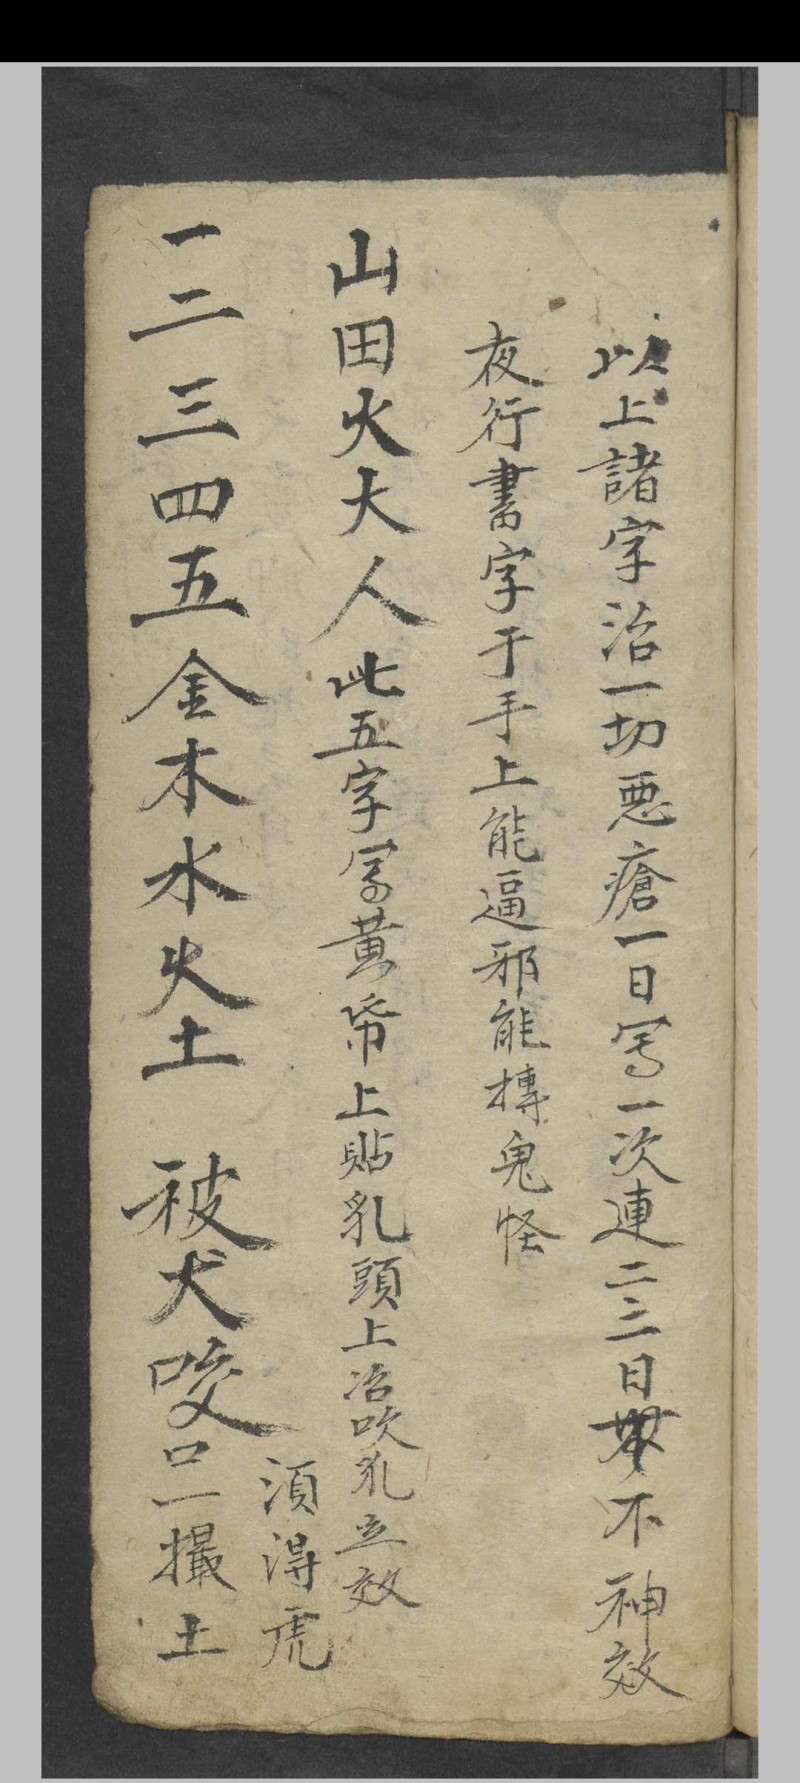 以上諸字治一切惡瘡一日写一次連二三日無不神效
夜行書字于手上能逼邪能摶鬼怪
山田火大人此五字写黄帋上貼乳頭上治吹乳立效
一二三四五金木水火土 被犬咬只一撮土
須得虎